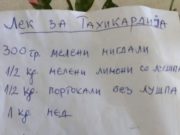 ЛЕК ЗА ТАХИКАРДИЈА
300 гр. МЕЛЕНИ МИГДАЛИ
1/2 кг. МЕЛЕНИ ЛИМОНИ СО ЛУШПА
1/2 кг. ПОРТОКАЛИ БЕЗ ЛУШПА
1 кг. МЕД